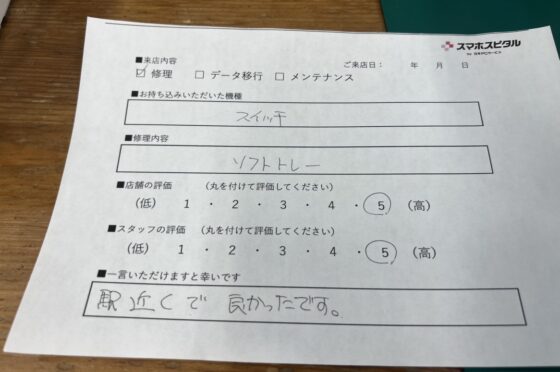 スマホスピタル
■来店内容
ご来店日： 年 月 日
☑ 修理 □ データ移行 □ メンテナンス
■お持ち込みいただいた機種
スイッチ
■修理内容
ソフトトレー
■店舗の評価 （丸を付けて評価してください）
（低） 1 ・ 2 ・ 3 ・ 4 ・ 5 （高）
■スタッフの評価 （丸を付けて評価してください）
（低） 1 ・ 2 ・ 3 ・ 4 ・ 5 （高）
■一言いただけますと幸いです
駅近くで 良かったです。